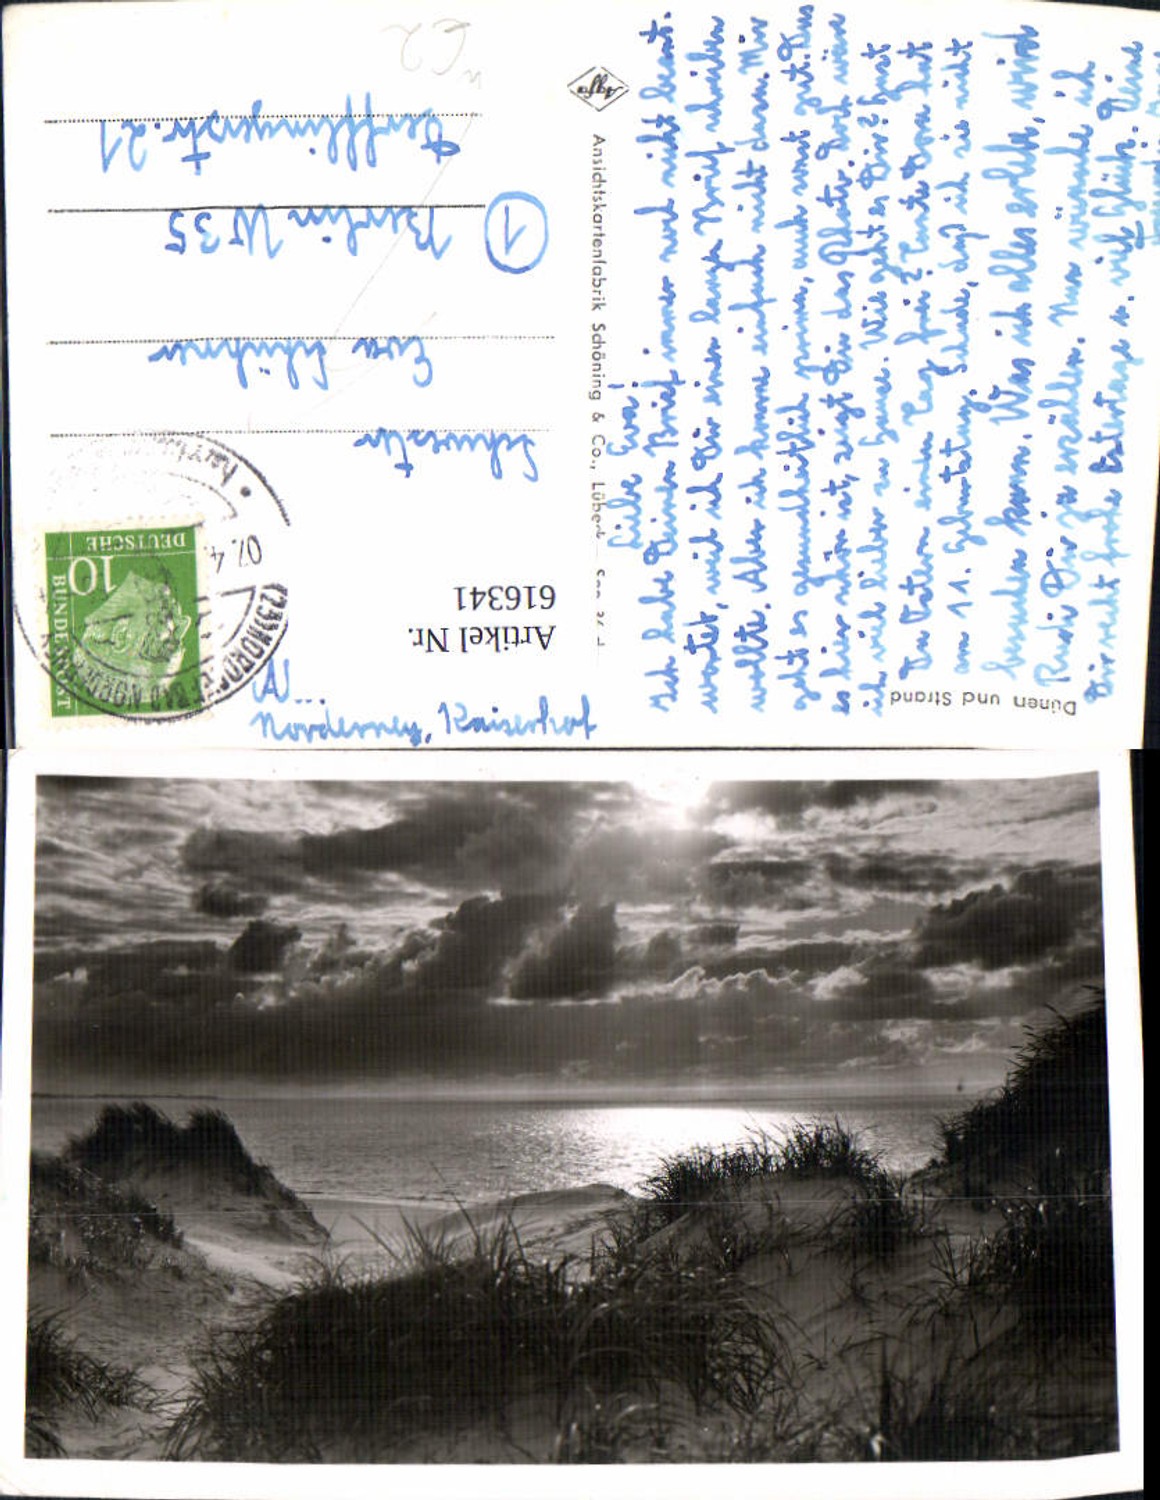 Dünen und Strand
Liebe Eva!
Ich habe Deinen Brief immer noch nicht beant-
wortet, weil ich Dir einen langen Brief schreiben
wollte. Aber ich komme einfach nicht dazu. Mir
geht es gesundheitlich prima, auch sonst gut.
es hier schön ist, zeigt Dir das Photo. Doch wäre
ich viel lieber zu Hause. Wie geht es Dir? Hast
Du Ostern einen Tag frei? Tante Dora hat
am 11. Geburtstag. Schade, daß ich sie nicht
besuchen kann. Was ich alles erlebe, wird
Rudi Dir ja erzählen. Nun wünsche ich
Dir recht frohe Ostertage u. viel Glück. Deine
Agfa
Ansichtskartenfabrik Schöning & Co., Lübeck
Norderney, Kaiserhof
Artikel Nr.
616341
DEUTSCHE
BUNDESPOST
10
(23) NORDERNEY
07.4.
Schwester
Eva
Berlin W 35
1
Derfflingerstr. 21